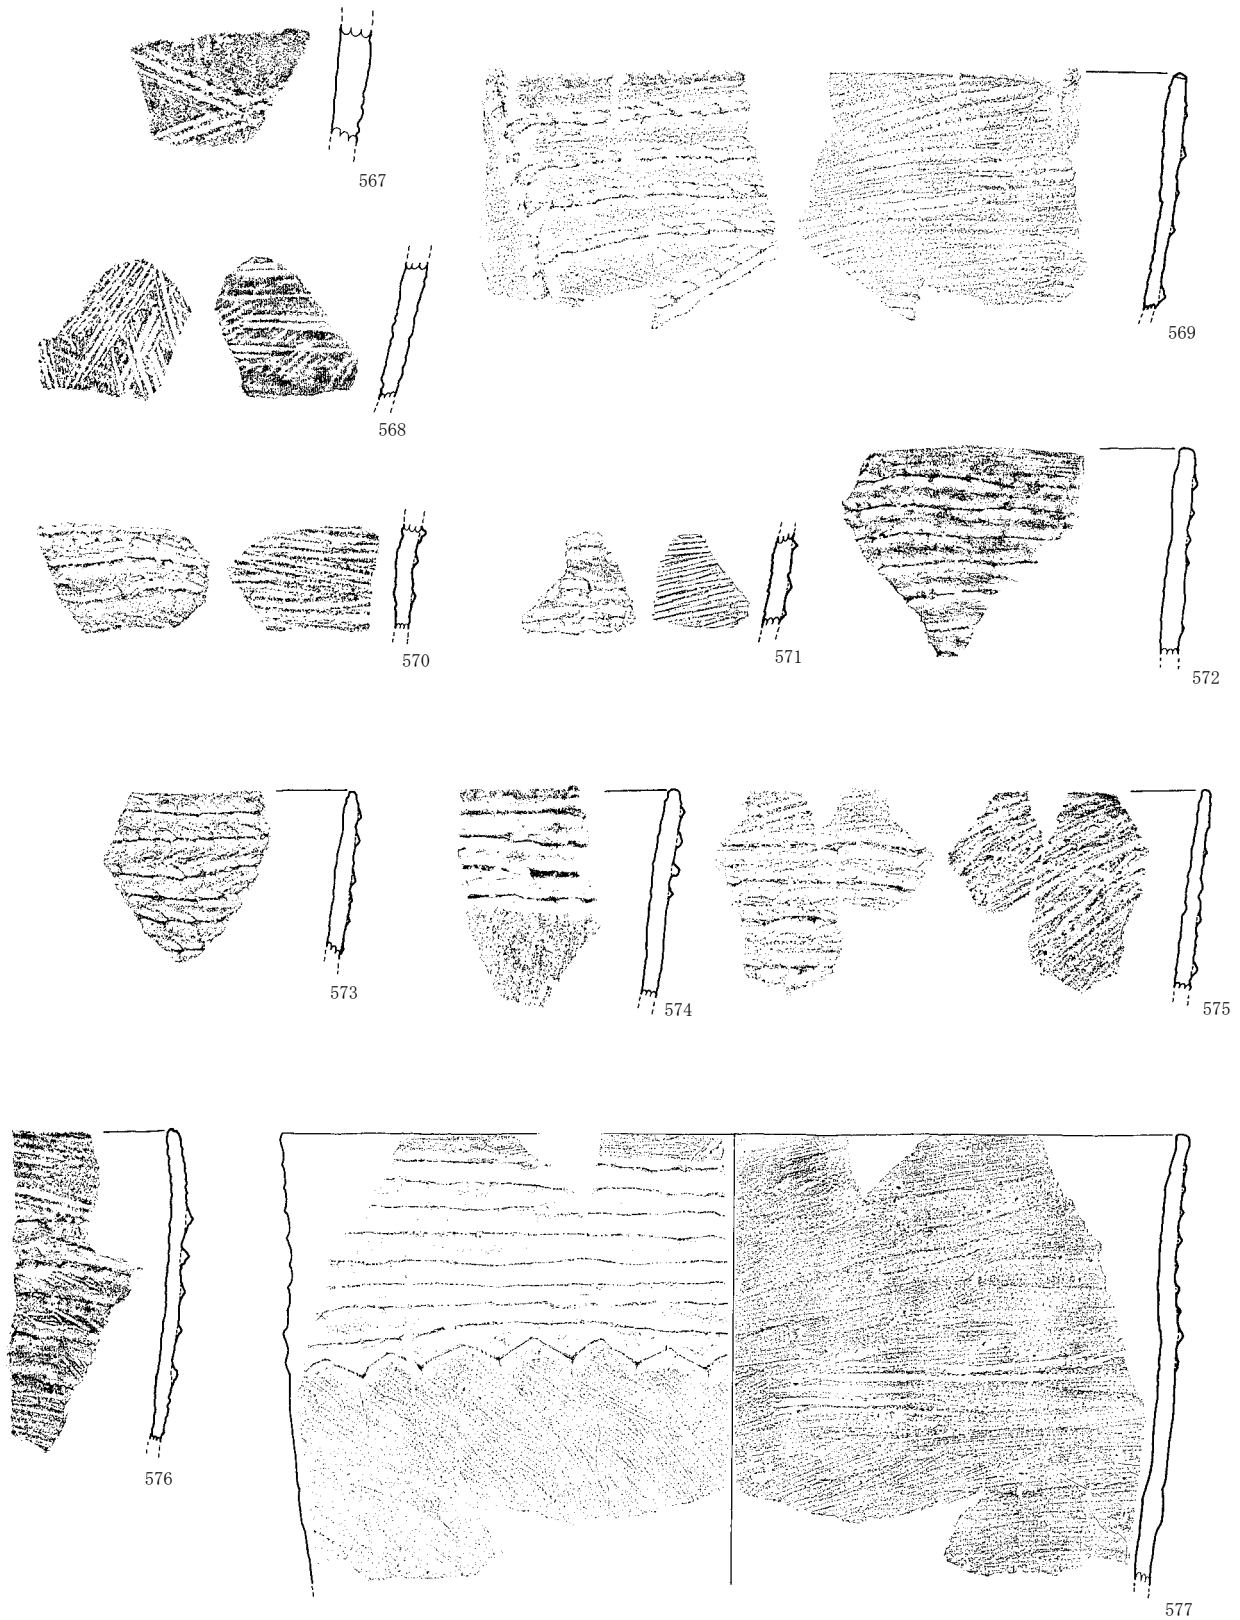 567
569
568
570
571
572
573
574
575
576
577